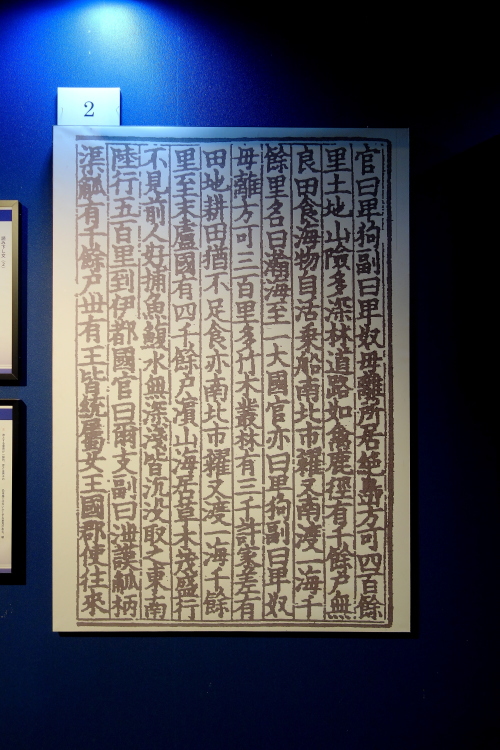 2
官曰卑狗副曰卑奴毋離所居絶島方可四百餘
里土地山險多深林道路如禽鹿徑有千餘戸無
良田食海物自活乗船南北市糴又南渡一海千
餘里名曰瀚海至一大國官亦曰卑狗副曰卑奴
毋離方可三百里多竹木叢林有三千許家差有
田地耕田猶不足食亦南北市糴又渡一海千餘
里至末盧國有四千餘戸濱山海居草木茂盛行
不見前人好捕魚鰒水無深淺皆沉没取之東南
陸行五百里到伊都國官曰爾支副曰泄謨觚柄
渠觚有千餘戸丗有王皆統屬女王國郡使往來